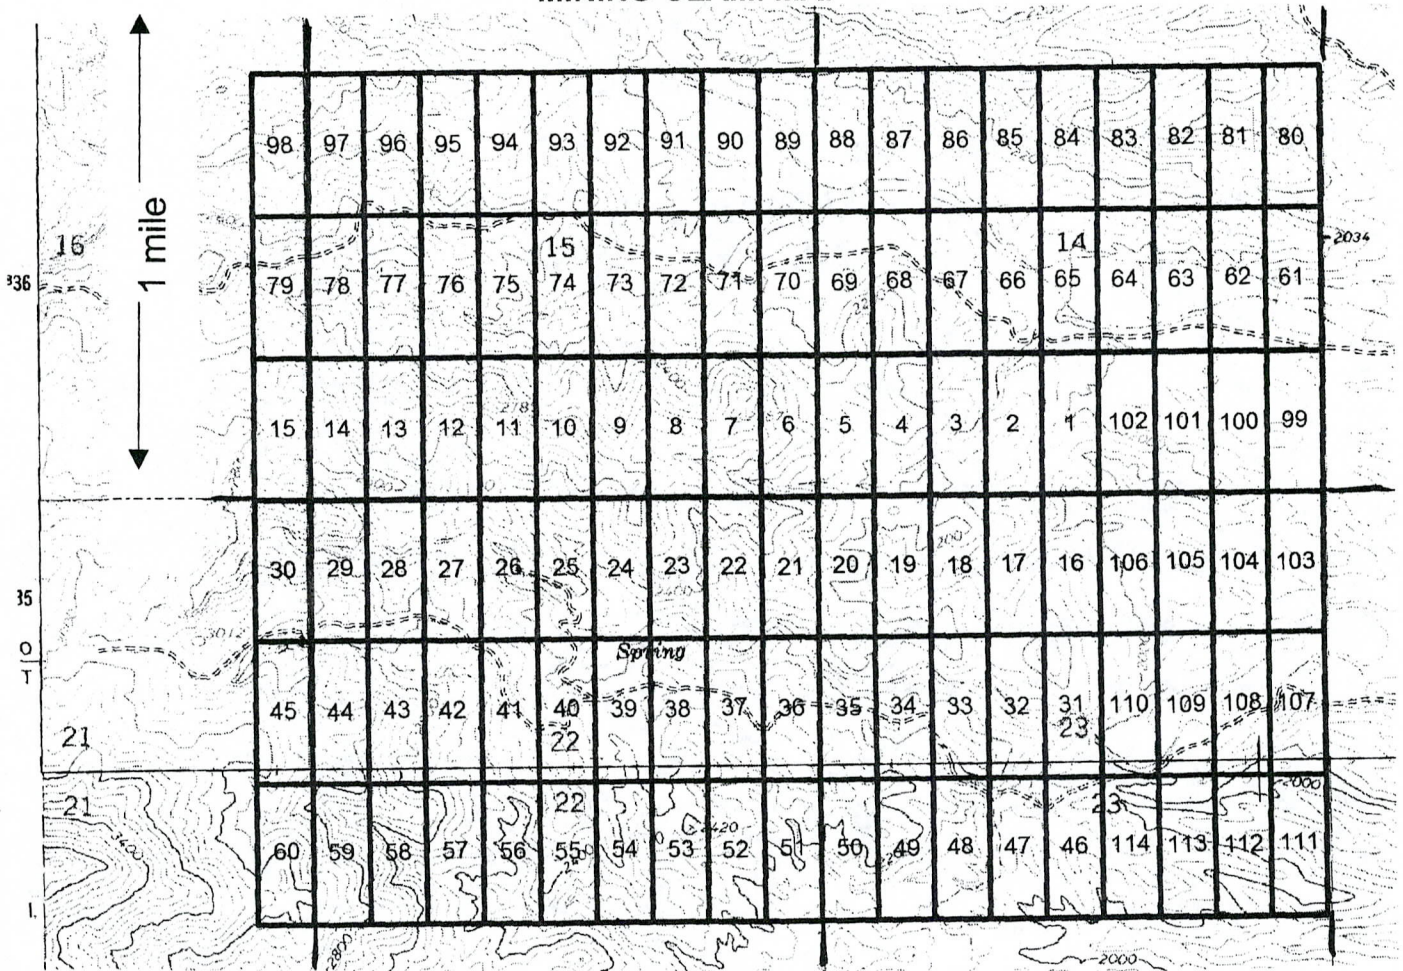 98 97 96 95 94 93 92 91 90 89 88 87 86 85 84 83 82 81 80
1 mile
16 15 14 2034
336 79 78 77 76 75 74 73 72 71 70 69 68 67 66 65 64 63 62 61
15 14 13 12 11 10 9 8 7 6 5 4 3 2 1 102 101 100 99
30 29 28 27 26 25 24 23 22 21 20 19 18 17 16 106 105 104 103
35
3012
O
T
Spring
45 44 43 42 41 40 39 38 37 36 35 34 33 32 31 110 109 108 107
21 22 23
2000
21 22 23
3400 2420
60 59 58 57 56 55 54 53 52 51 50 49 48 47 46 114 113 112 111
I.
2800 2000